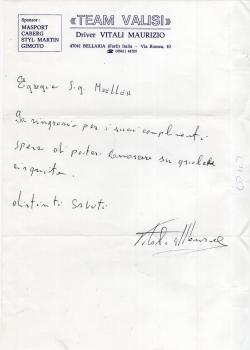 Sponsor:
MASPORT
CABERG
STYL MARTIN
GIMOTO
«TEAM VALISI»
Driver VITALI MAURIZIO
47041 BELLARIA (Forlì) Italia - Via Romea, 10
Egregio Sig. Moeller
La ringrazio per i suoi complimenti
spero di poterla conoscere su qualche
circuito.
distinti Saluti
Vitali Maurizio